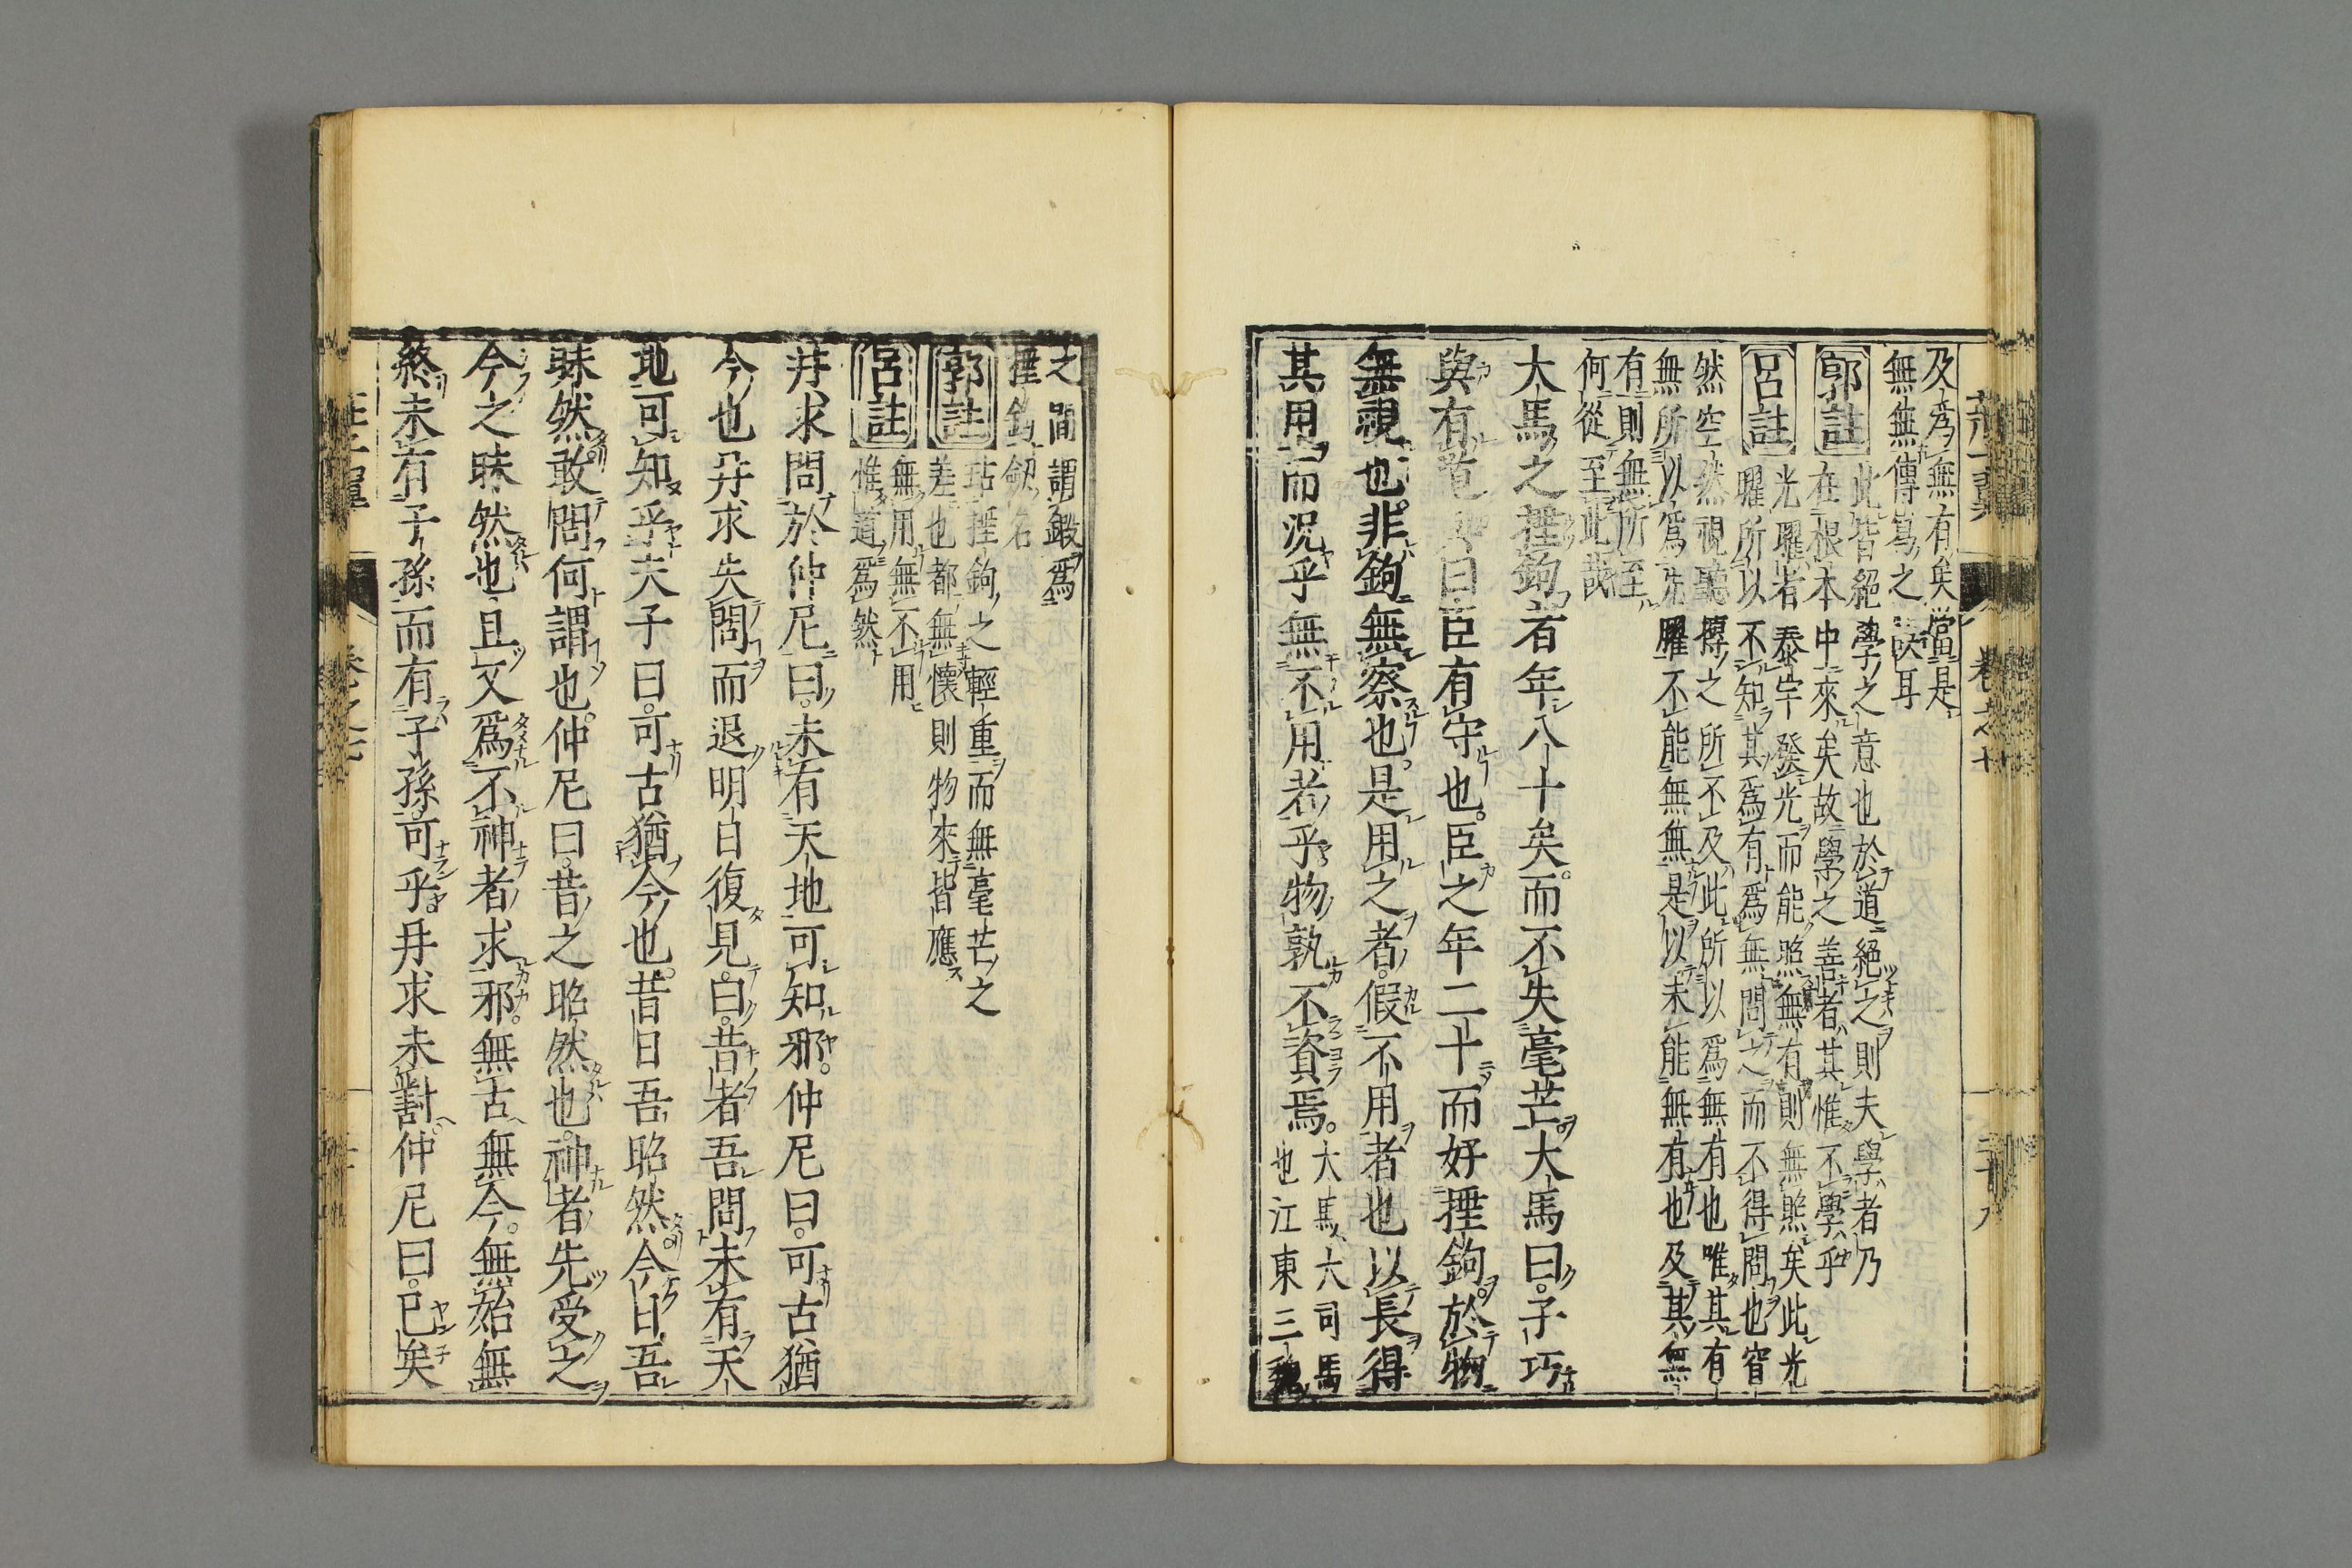 及爲無有矣當是
無無傳寫之誤耳
郭註
此皆絕學之意也於道絕之則夫學者乃
在根本中來矣故學之善者其惟不學乎
呂註
光曜者泰宇發光而能照無有則無熊矣此光
曜所以不知其爲有爲無問之而不得問也窅
然空然視聽搏之所不及此所以爲無有也唯其有
無所以爲光曜不能無無是以未能無有也及其無
有則無所至
何從至此哉
大馬之捶鉤者年八十矣而不失毫芒大馬曰子巧
與有道與曰臣有守也臣之年二十而好捶鉤於物
無視也非鉤無察也是用之者假不用者也以長得
其用而況乎無不用者乎物孰不資焉
大馬大司馬
也江東三魏
之間謂鍛爲
捶鉤釼名
郭註
玷捶鉤之輕重而無毫芒之
差也都無懷則物來皆應
呂註
無用無不用
惟道爲然
冉求問於仲尼曰未有天地可知邪仲尼曰可古猶
今也冉求失問而退明日復見曰昔者吾問未有天
地可知乎夫子曰可古猶今也昔日吾昭然今日吾
昧然敢問何謂也仲尼曰昔之昭然也神者先受之
今之昧然也且又爲不神者求邪無古無今無始無
終未有子孫而有子孫可乎冉求未對仲尼曰已矣